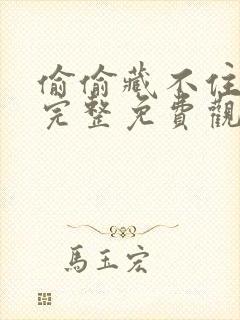 偷偷藏不住
完整免費觀
馬玉宏